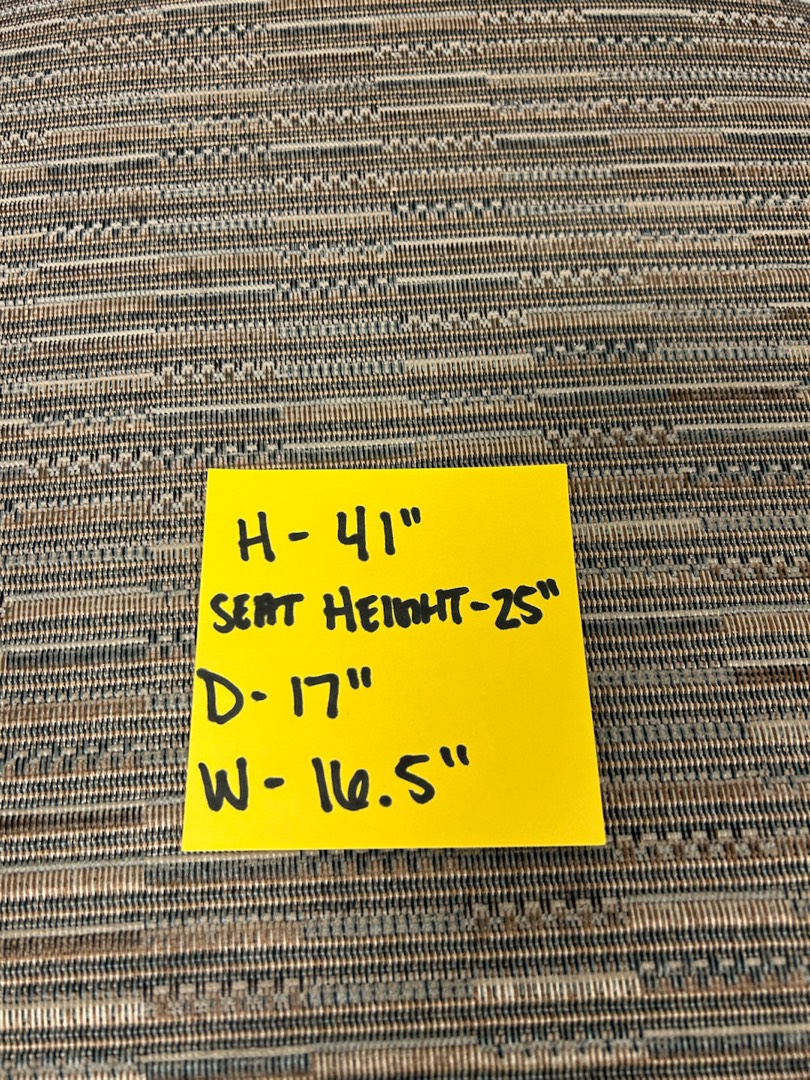 H- 41"
SEAT HEIGHT-25"
D- 17"
W- 16.5"